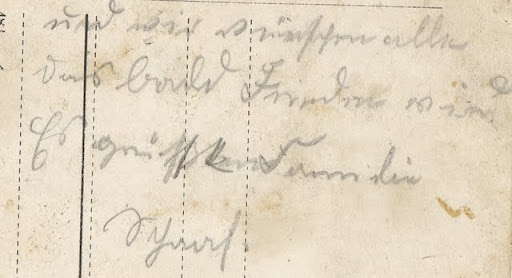 und wir wünschen alle
das bald Frieden wird.
Es grüßt Familie
Schaaf.